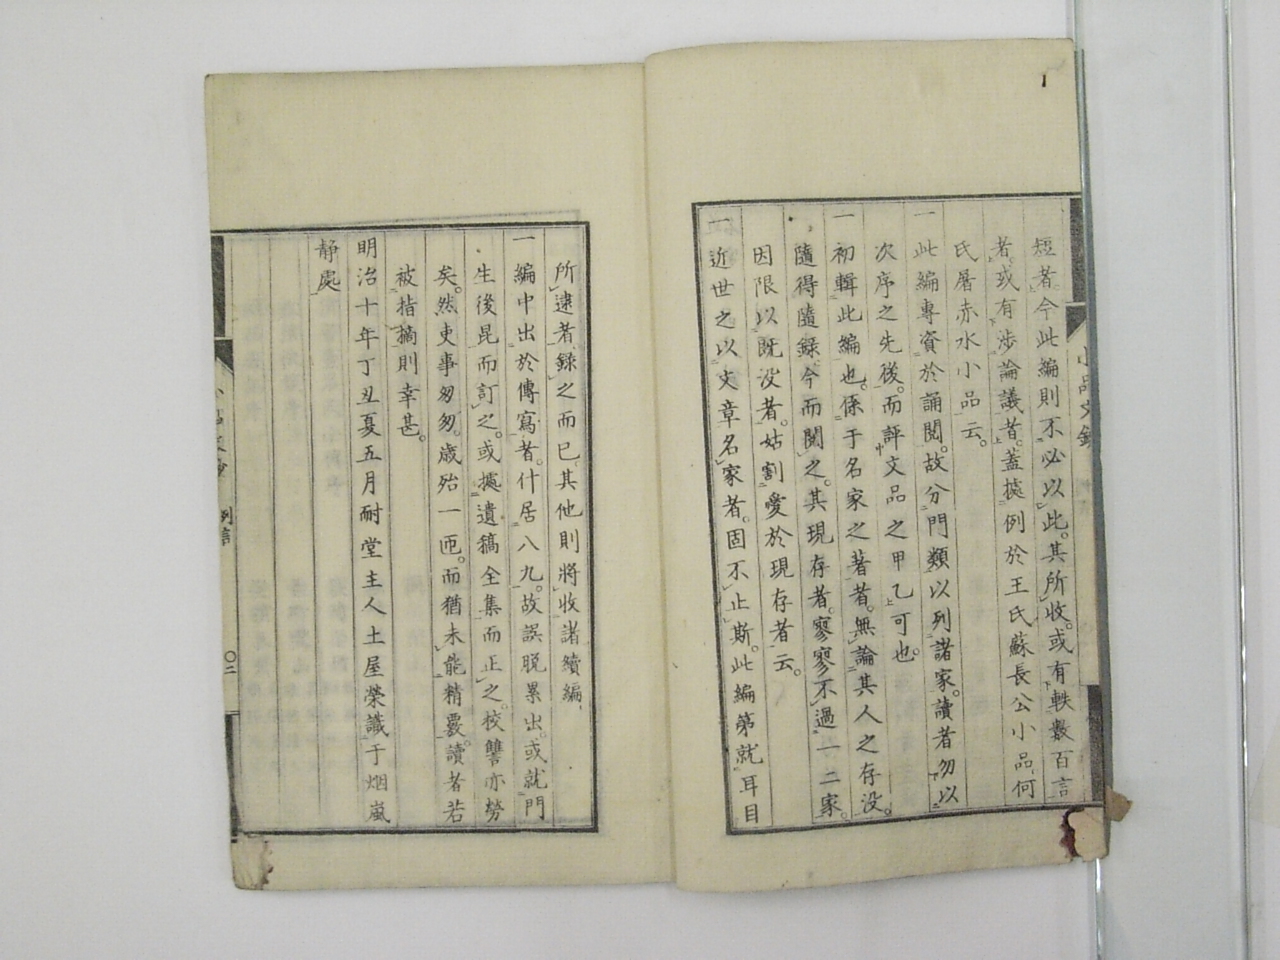 短者今此編則不必以此。其所收。或有軼數百言
者。或有涉論議者。蓋據例於王氏蘇長公小品何
氏屠赤水小品云。
一此編專資於誦閱。故分門類以列諸家。讀者勿以
次序之先後。而評文品之甲乙可也。
一初輯此編也。係于名家之著者。無論其人之存沒。
隨得隨錄。今而閱之。其現存者。寥寥不過一二家。
因限以既沒者。姑割愛於現存者云。
一近世之以文章名家者。固不止斯。此編第就耳目
所逮者、錄之而已。其他則將收諸續編。
一編中出於傳寫者。什居八九。故誤脫累出。或就門
生後昆而訂之。或據遺稿全集而正之。校讐亦勞
矣。然吏事匆匆。歲殆一匝。而猶未能精覈。讀者若
被指摘則幸甚。
明治十年丁丑夏五月耐堂主人土屋榮識于烟嵐
靜處
例言
〇二